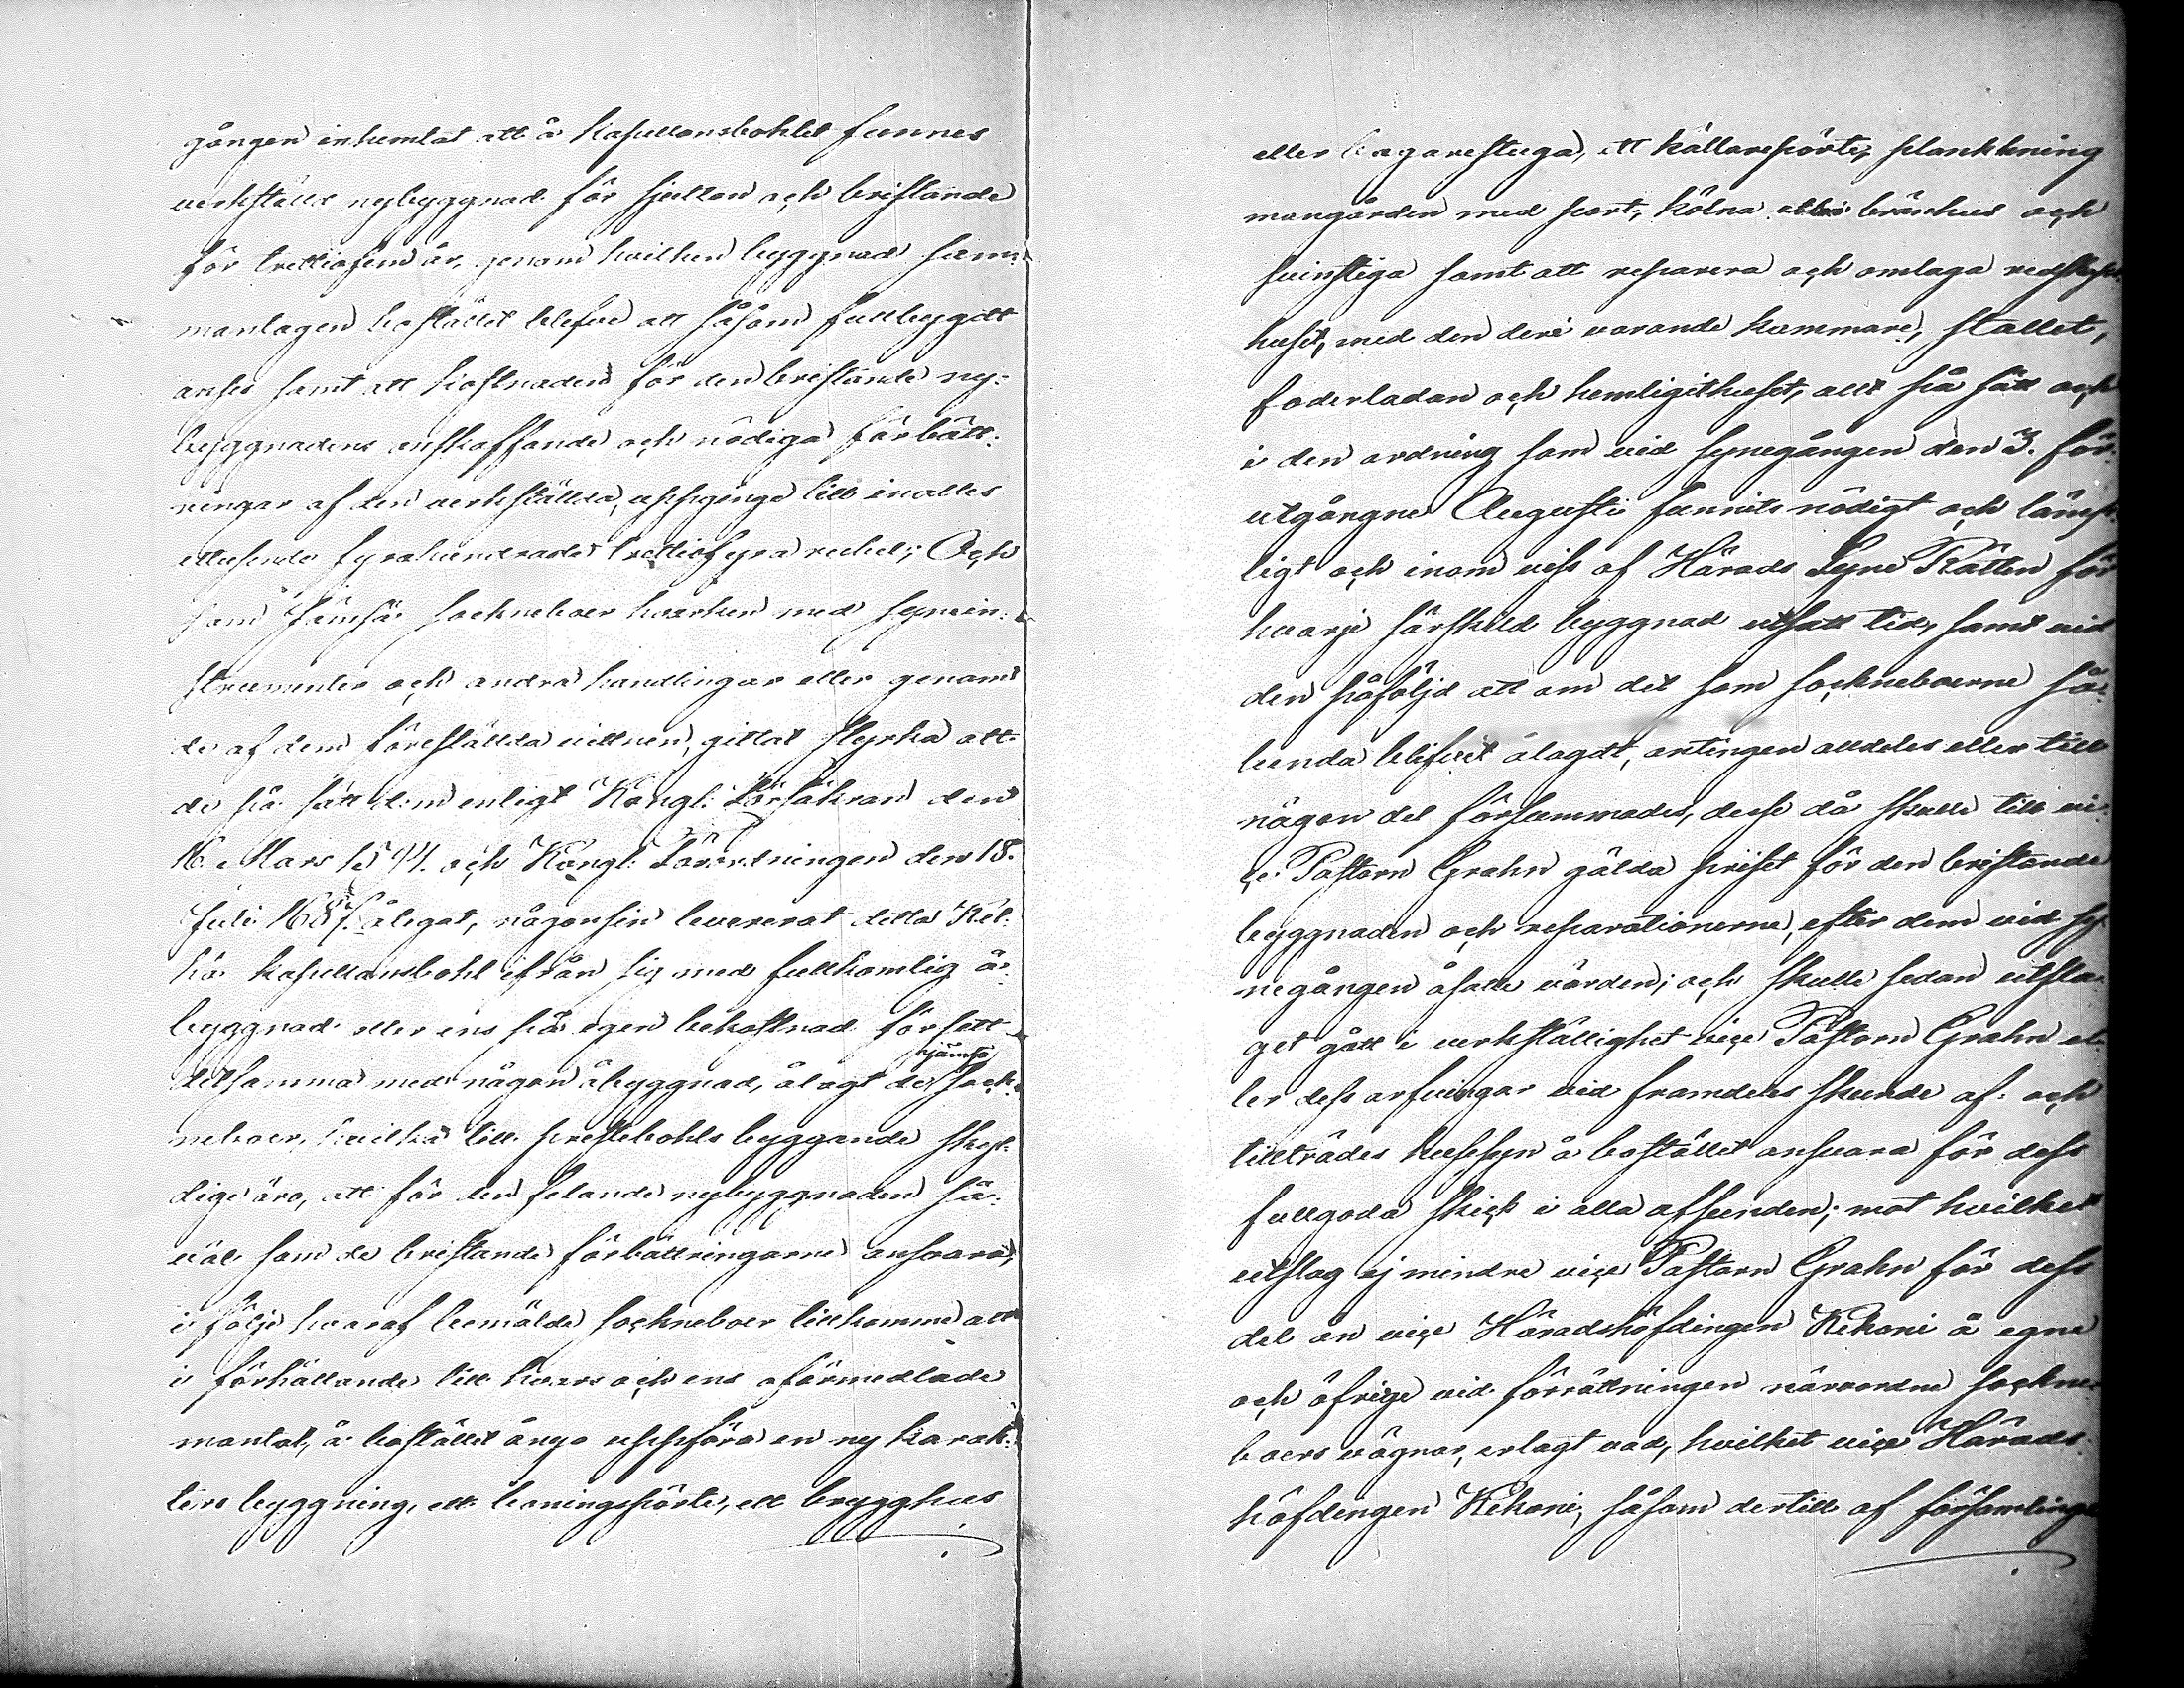 gången inhemtat att å kapellansbohlet funnes
verkställd nybyggnad för sjutton och bristande
för trettiofem år, genom hvilken byggnad sam-
manlagen bostället blefve att såsom fullbygdt
anses samt att kostnaden för den bristande ny-
byggnadens anskaffande och nödiga förbätt-
ringar af den verkställda, uppginge till inalles
ettusende fyrahundrade trettiofyra rubel; Och
som Jämsä sockneboer hvarken med synein-
strumenter och andra handlingar eller genom
de af dem föreställda vittnen, gittat styrka att
de på sätt dem enligt Kongl. Försäkran den
16 Mars och Kongl. Förordningen den 18.
Juli ålegat, någonsin levererat detta
kapellansbohl ifrån sig med fullkomlig å-
byggnad eller ens på egen bekostnad försett
detsamma med någon åbyggnad, ålagt de Jämsä sock-
neboer, hvilka till prestebohls byggande skyl-
dige äro, att för den felande nybyggnaden så-
väl som de bristande förbättringarne ansvara,
i följe hvaraf bemälde sockneboer tillkomme att
i förhållande till hvars och ens oförmedlade
mantal, å bostället ånyo uppföra en ny karak-
ters byggning, ett boningspörte, ett brygghus
eller bagarestuga, ett källarepörte, plankning
mangården med port, kölna och
svinstiga samt att reparera och omlaga redskaps-
huset, med den deri varande kammare, stallet,
foderladan och hemligithuset, allt på sätt och
i den ordning som vid synegången den 3. för-
utgångne Augusti funnits nödigt och lämp-
ligt och inom viss af Härads Syne Rätten för
hvarje särskild byggnad utsatt tid, samt vid
den påföljd att om det som sockneboerne så-
lunda blifvit ålagdt, antingen alldeles eller till
någon del försummades, desse då skulle till vi-
ce Pastorn Grahn gälda priset för den bristande
byggnaden och reparationerne, efter dem vid sy-
negången åsatte värden; och skulle sedan utsla-
get gått i verkställighet vice Pastorn Grahn el-
ler dess arfvingar vid framdeles skeende af- och
tillträdes husesyn å bostället ansvara för dess
fullgoda skick i alla afseenden; mot hvilket
utslag ej mindre vice Pastorn Grahn för dess
del än vice Häradshöfdingen Kekoni å egne
och öfrige vid förrättningen närvarande sockne-
boers vägnar, erlagt vad, hvilket vice Härads-
höfdingen Kekoni, såsom dertill af församlinge